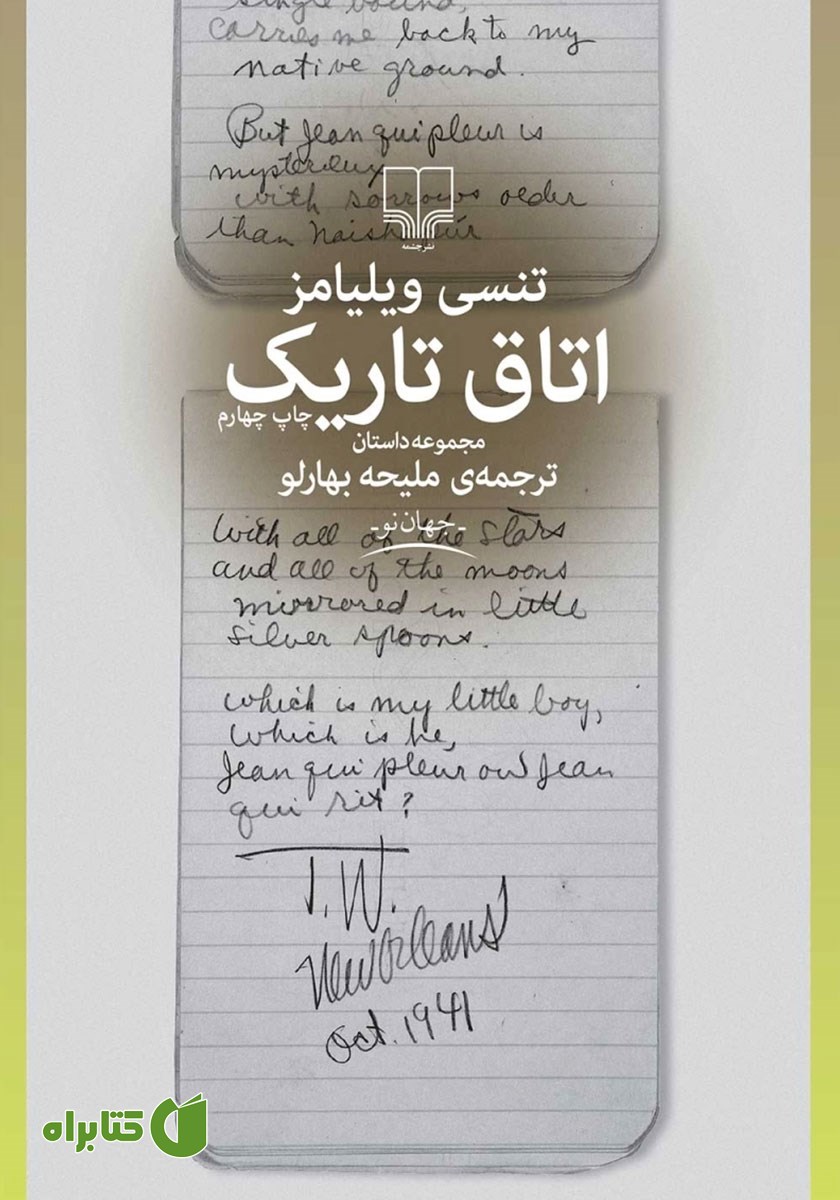 single bound,
carries me back to my
native ground.
But Jean qui pleur is
mysterieux
with sorrows older
than
نشر چشمه
تنسی ویلیامز
اتاق تاریک
چاپ چهارم
مجموعه داستان
ترجمه‌ی ملیحه بهارلو
- جهان نو -
With all of the stars
and all of the moons
mirrored in little
silver spoons.
which is my little boy,
which is he,
Jean qui pleur ou Jean
qui rit?
T. W.
New Orleans
Oct. 1941
کتابراه